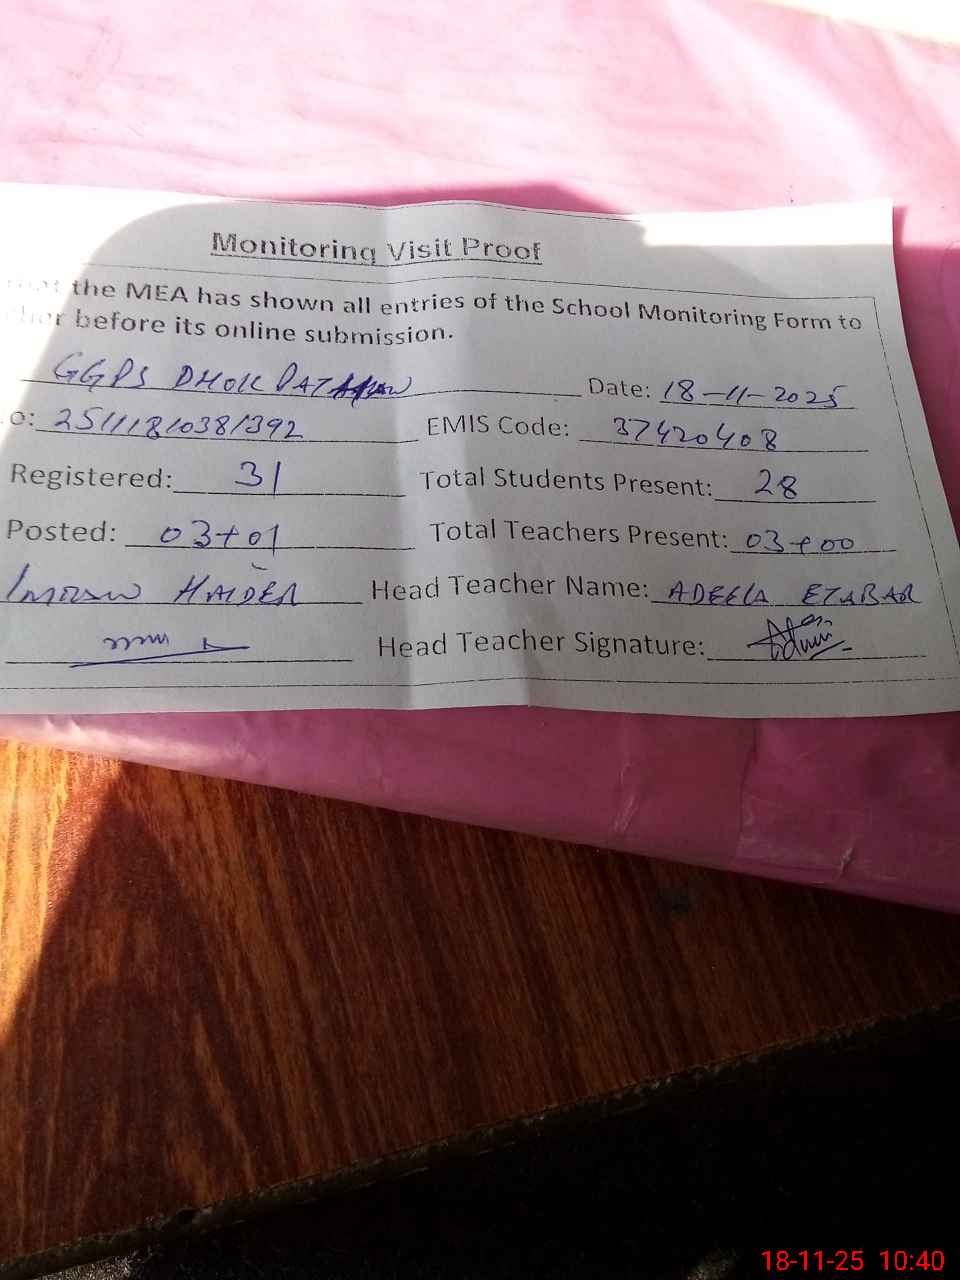 Monitoring Visit Proof
the MEA has shown all entries of the School Monitoring Form to
before its online submission.
GGPS DHOK Date: 18-11-2025
o: 25111810381392 EMIS Code: 37420408
Registered: 31 Total Students Present: 28
Posted: 03+01 Total Teachers Present: 03+00
Imran HAIDER Head Teacher Name: ADEELA ETABAR
Head Teacher Signature:
18-11-25 10:40